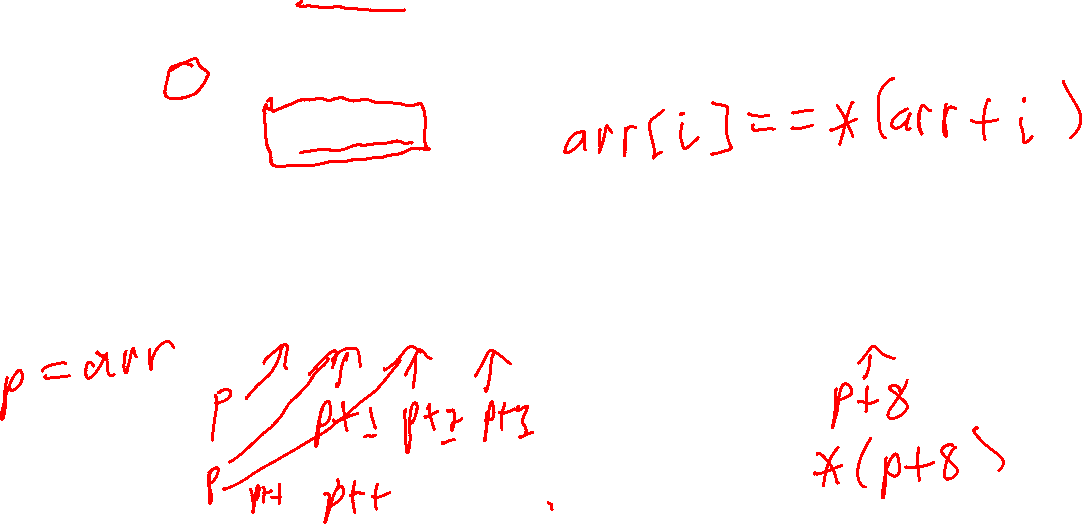 arr[i]==*(arr+i)
p=arr
p p+1 p+2 p+3 p+8
p p++ p++ *(p+8)